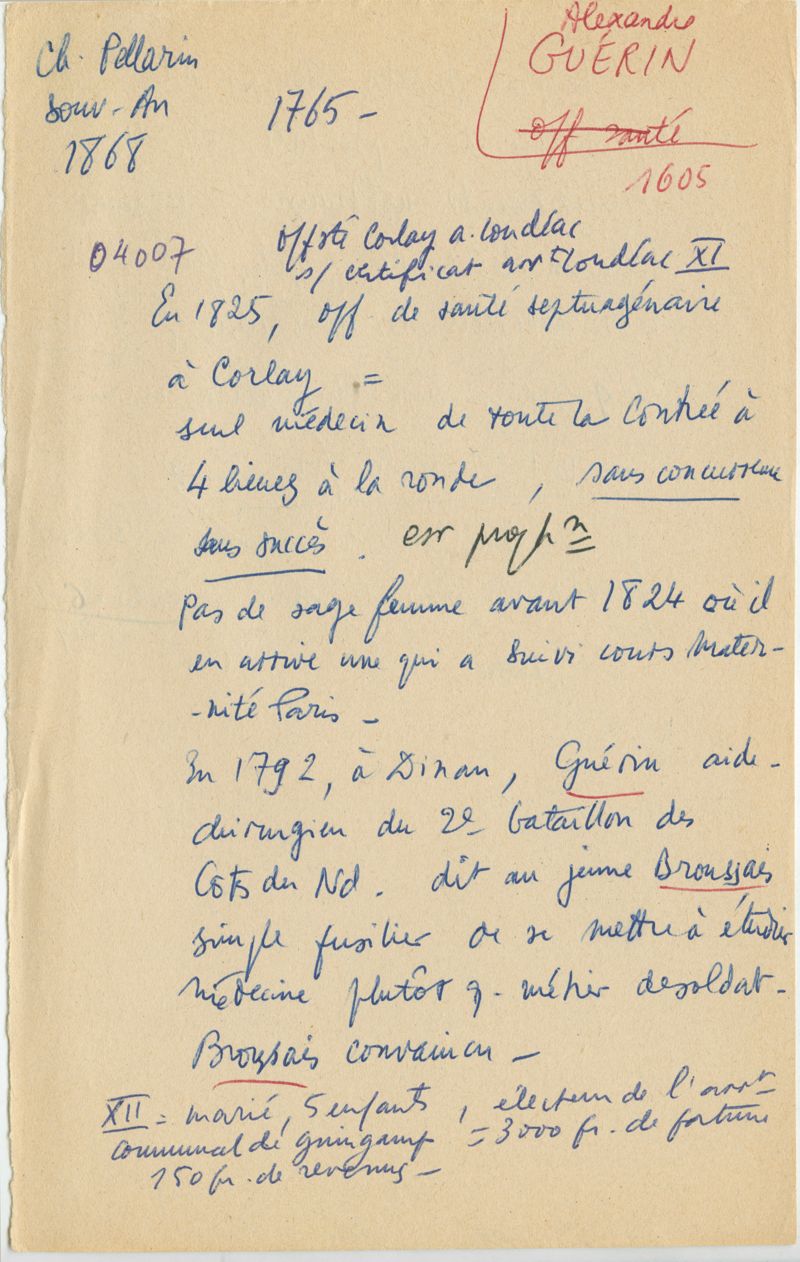 Ch. Pellarin
Souv. An
1868
1765 -
Alexandre
GUÉRIN
off santé
1605
04007
Offsté Corlay a. Loudéac
s/ certificat arrt Loudéac XI
En 1825, off de santé septuagénaire
à Corlay =
seul médecin de toute la contrée à
4 lieues à la ronde, sans concurrence
sans succès.
Pas de sage femme avant 1824 où il
en arrive une qui a suivi cours Mater-
-nité Paris -
En 1792, à Dinan, Guérin aide-
chirurgien du 2e bataillon des
Côts du Nd. dit au jeune Broussais
simple fusilier de se mettre à étudier
médecine plutôt q. métier de soldat -
Broussais convaincu -
XII = marié, 5 enfants, électeur de l'arrt
communal de Guingamp = 3000 fr. de fortune
150 fr. de revenus -